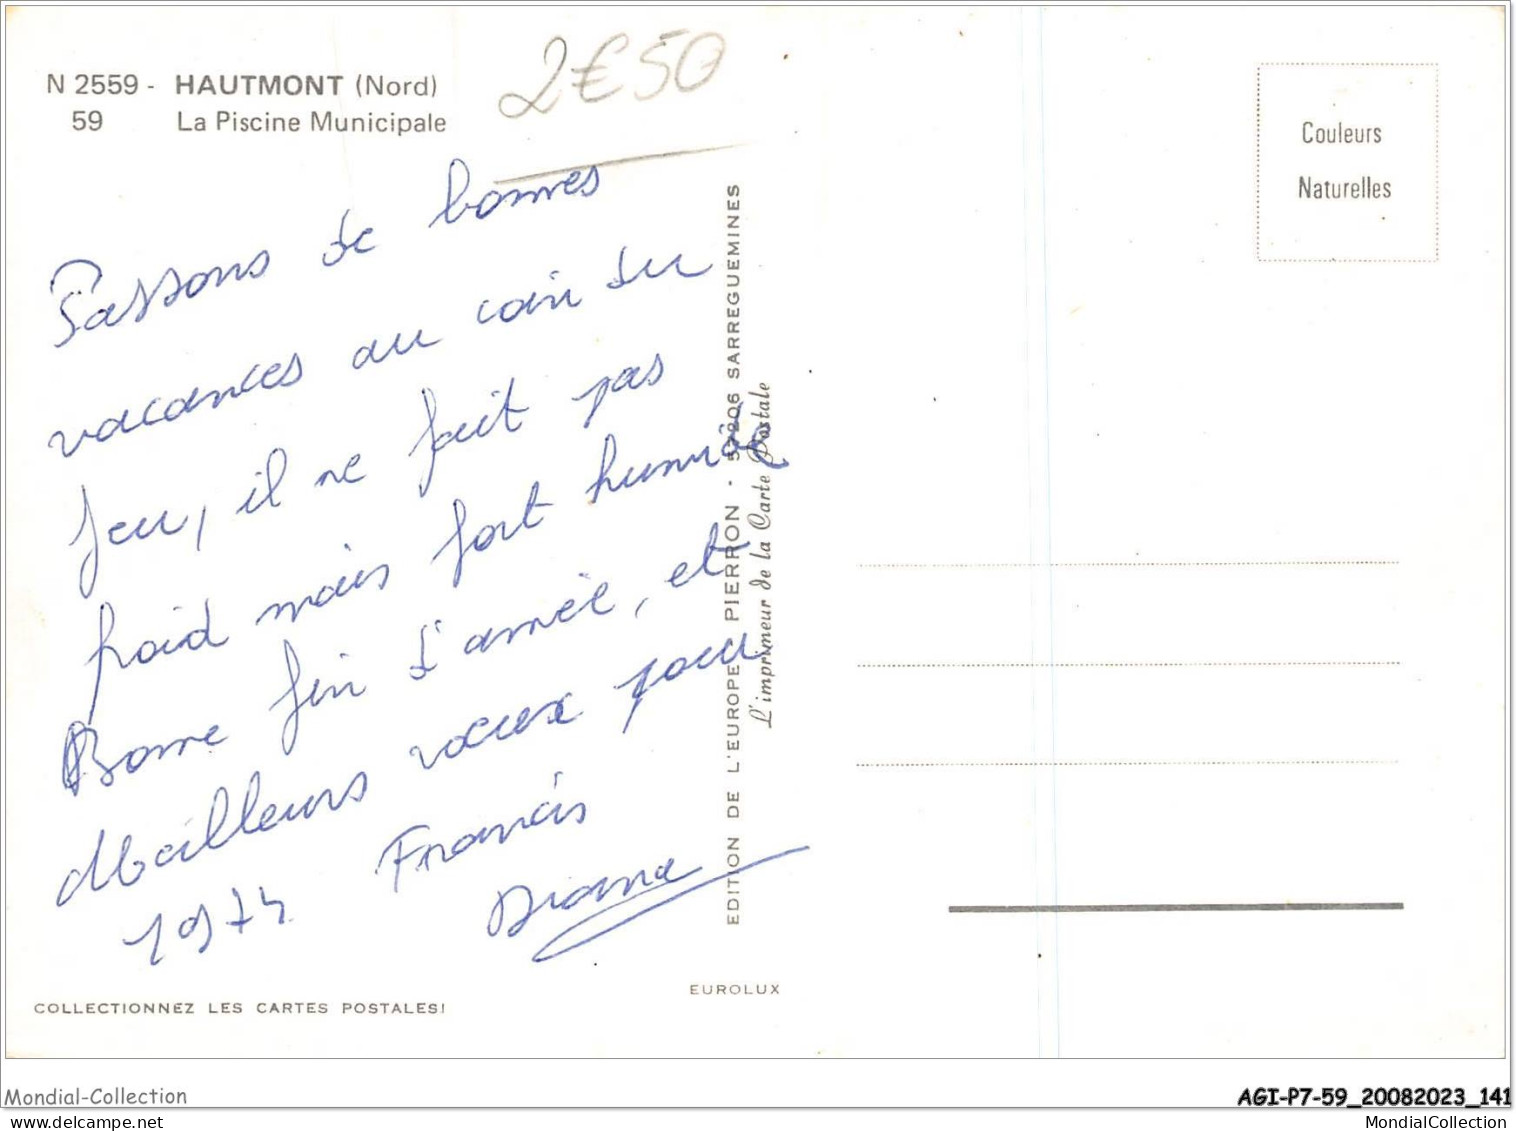 N 2559 - HAUTMONT (Nord)
59 La Piscine Municipale
2€50
Couleurs
Naturelles
Passons de bonnes
vacances au coin du
feu, il ne fait pas
froid mais fort humide
Bonne fin d'année, et
Meilleurs vœux pour
1974 Francis
Diana
EDITION DE L'EUROPE PIERRON - 57206 SARREGUEMINES
L'imprimeur de la Carte Postale
EUROLUX
COLLECTIONNEZ LES CARTES POSTALES!
Mondial-Collection
AGI-P7-59_20082023_141
MondialCollection